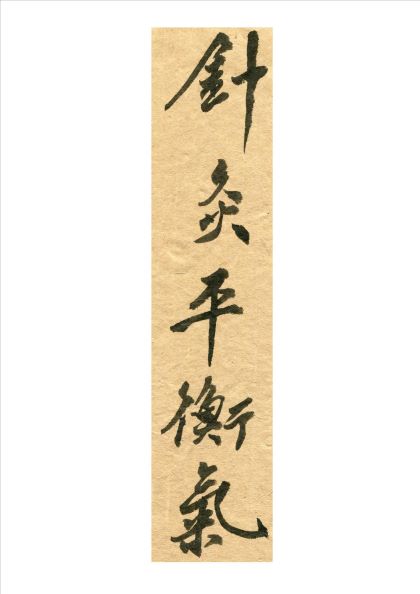 針灸平衡氣